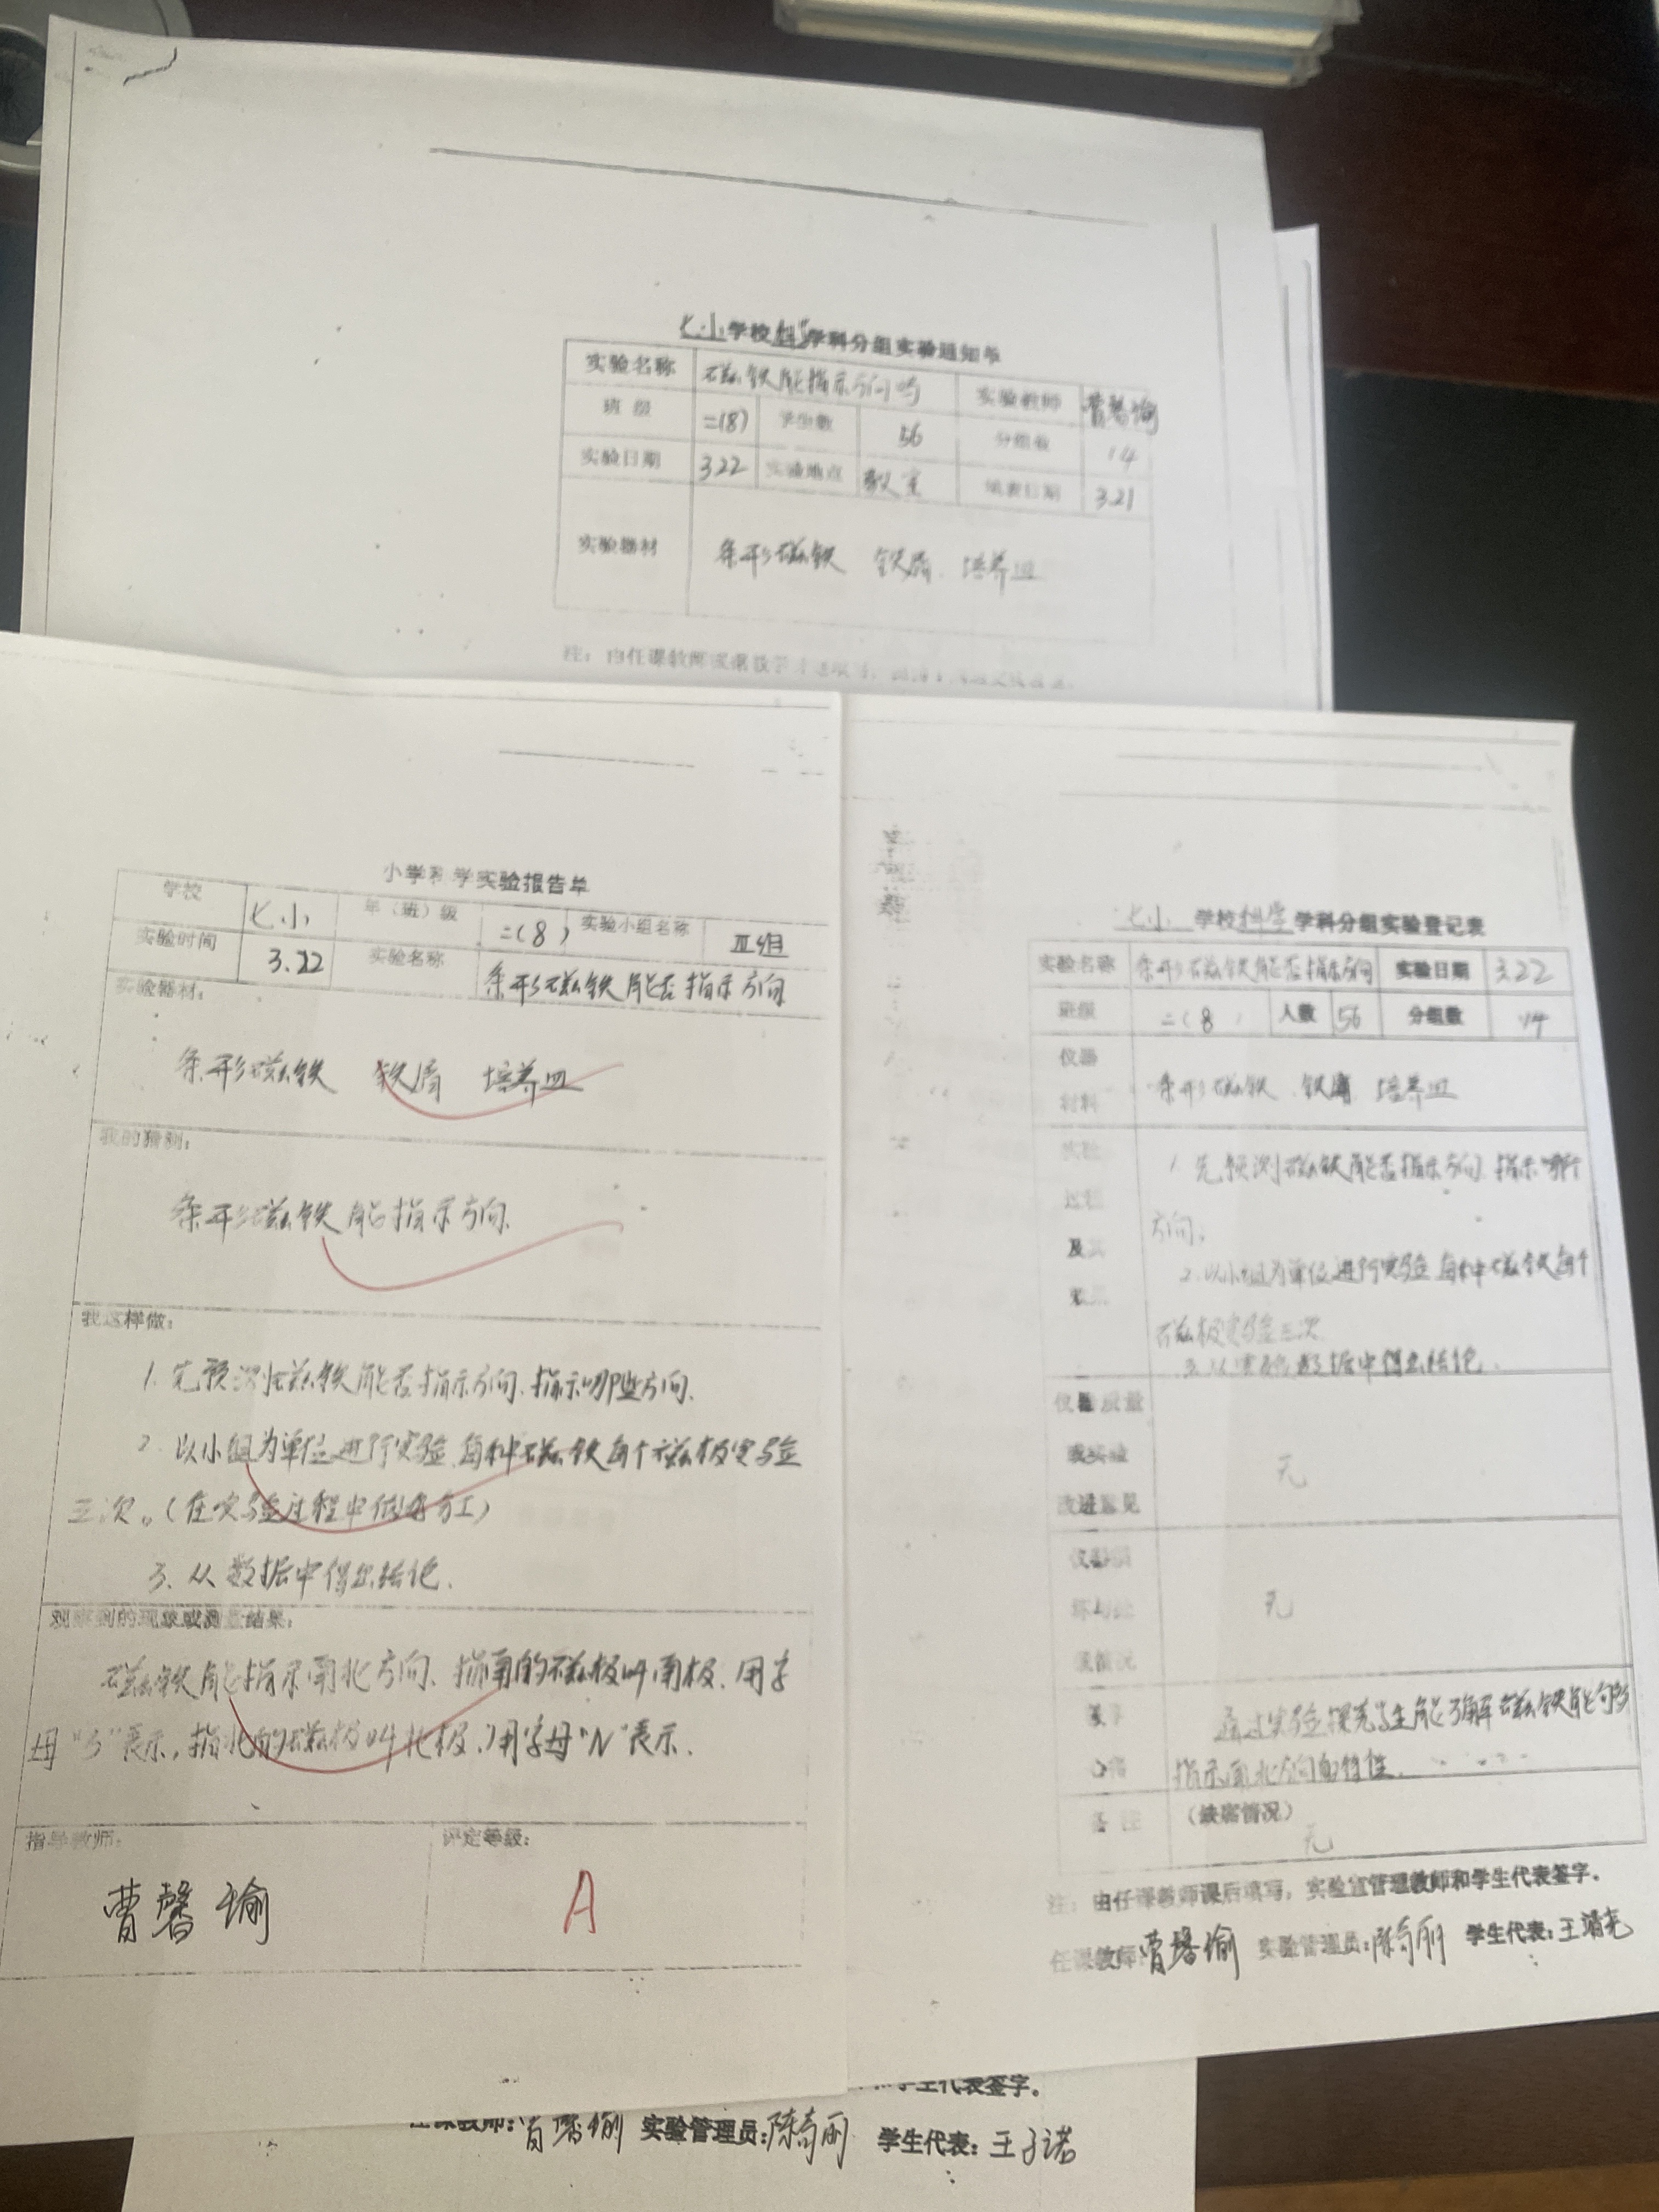 七小学校科学学科分组实验通知单
实验名称 磁铁能指示方向吗 实验教师 曹馨瑜
班级 二(8) 学生数 56 分组数 14
实验日期 3.22 实验地点 教室 填表日期 3.21
实验器材 条形磁铁 铁屑 培养皿
注：由任课教师
小学科学实验报告单
学校 七小 年（班）级 二(8) 实验小组名称 Ⅲ组
实验时间 3.22 实验名称 条形磁铁能否指示方向
实验器材：
条形磁铁 铁屑 培养皿
我的猜测：
条形磁铁能指示方向.
我这样做：
1. 先预测磁铁能否指示方向.指示哪些方向.
2. 以小组为单位进行实验.每种磁铁每个磁极实验
三次。(在实验过程中做好分工)
3. 从数据中得出结论.
观察到的现象或测量结果：
磁铁能指示南北方向、指南的磁极叫南极.用字
母"S"表示,指北的磁极叫北极,用字母"N"表示.
指导教师：
评定等级：
曹馨瑜
A
七小 学校科学学科分组实验登记表
实验名称 条形磁铁能否指示方向 实验日期 3.22
班级 二(8) 人数 56 分组数 14
仪器
材料
条形磁铁.铁屑 培养皿
实验
过程
及其
1. 先预测磁铁能否指示方向.指示哪个
方向。
2. 以小组为单位进行实验.每种磁铁每个
磁极实验三次
3. 从实验数据中得出结论.
仪器质量
或实验
改进意见
无
无
通过实验探究学生能了解磁铁能够
指示南北方向的特性.
备注 （缺席情况）
无
注：由任课教师课后填写，实验室管理教师和学生代表签字。
任课教师:曹馨瑜 实验管理员:陈奇丽 学生代表:王
学生代表签字。
任课教师:曹馨瑜 实验管理员:陈奇丽 学生代表:王子诺